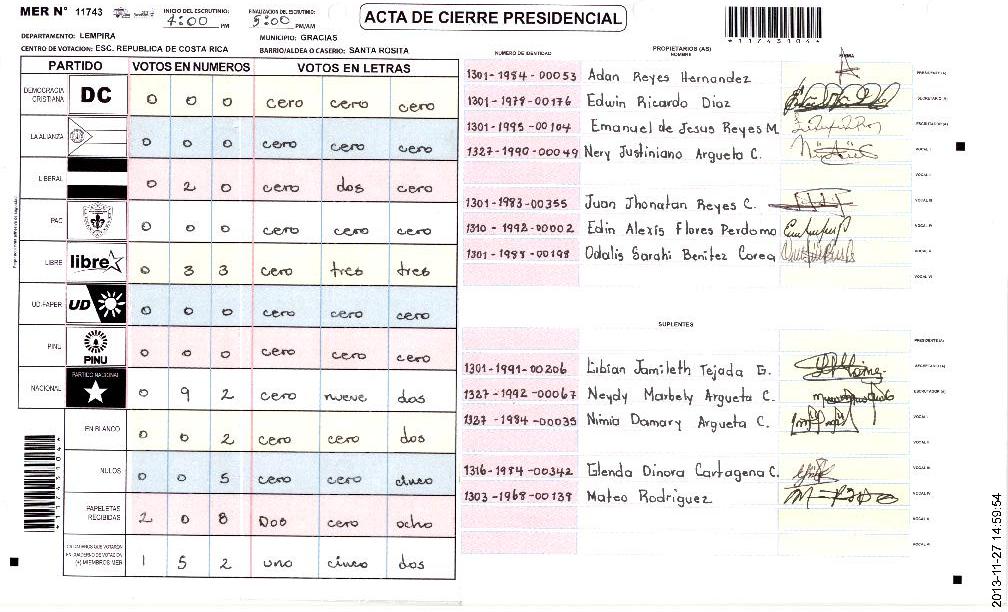 MER N° 11743
INICIO DEL ESCRUTINIO: 4:00 PM
FINALIZACION DEL ESCRUTINIO: 5:00 PM/AM
ACTA DE CIERRE PRESIDENCIAL
*117431044*
DEPARTAMENTO: LEMPIRA
MUNICIPIO: GRACIAS
CENTRO DE VOTACION: ESC. REPUBLICA DE COSTA RICA
BARRIO/ALDEA O CASERIO: SANTA ROSITA
PARTIDO VOTOS EN NUMEROS VOTOS EN LETRAS
DEMOCRACIA CRISTIANA DC 0 0 0 cero cero cero
LA ALIANZA 0 0 0 cero cero cero
LIBERAL 0 2 0 cero dos cero
PAC 0 0 0 cero cero cero
LIBRE libre 0 3 3 cero tres tres
UD-FAPER UD 0 0 0 cero cero cero
PINU PINU 0 0 0 cero cero cero
NACIONAL PARTIDO NACIONAL 0 9 2 cero nueve dos
EN BLANCO 0 0 2 cero cero dos
NULOS 0 0 5 cero cero cinco
PAPELETAS RECIBIDAS 2 0 8 Dos cero ocho
CIUDADANOS QUE VOTARON EN CUADERNO DE VOTACION (+) MIEMBROS MER 1 5 2 uno cinco dos
NUMERO DE IDENTIDAD
PROPIETARIOS (AS)
NOMBRE
FIRMA
1301-1984-00053 Adan Reyes Hernandez PRESIDENTE(A)
1301-1979-00176 Edwin Ricardo Diaz SECRETARIO(A)
1301-1995-00104 Emanuel de Jesus Reyes M. ESCRUTADOR(A)
1327-1990-00049 Nery Justiniano Argueta C. VOCAL I
VOCAL II
1301-1983-00355 Juan Jhonatan Reyes C. VOCAL III
1310-1992-00002 Edin Alexis Flores Perdomo VOCAL IV
Odalis Sarahi Benitez Corea VOCAL V
VOCAL VI
SUPLENTES
PRESIDENTE(A)
1301-1991-00206 Libian Jamileth Tejada G. SECRETARIO(A)
1327-1992-00067 Neydy Marbely Argueta C. ESCRUTADOR(A)
1327-1984-00035 Nimia Damary Argueta C. VOCAL I
VOCAL II
1316-1984-00342 Glenda Dinora Cartagena C. VOCAL III
1303-1968-00139 Mateo Rodriguez VOCAL IV
VOCAL V
VOCAL VI
2013-11-27 14:59:54